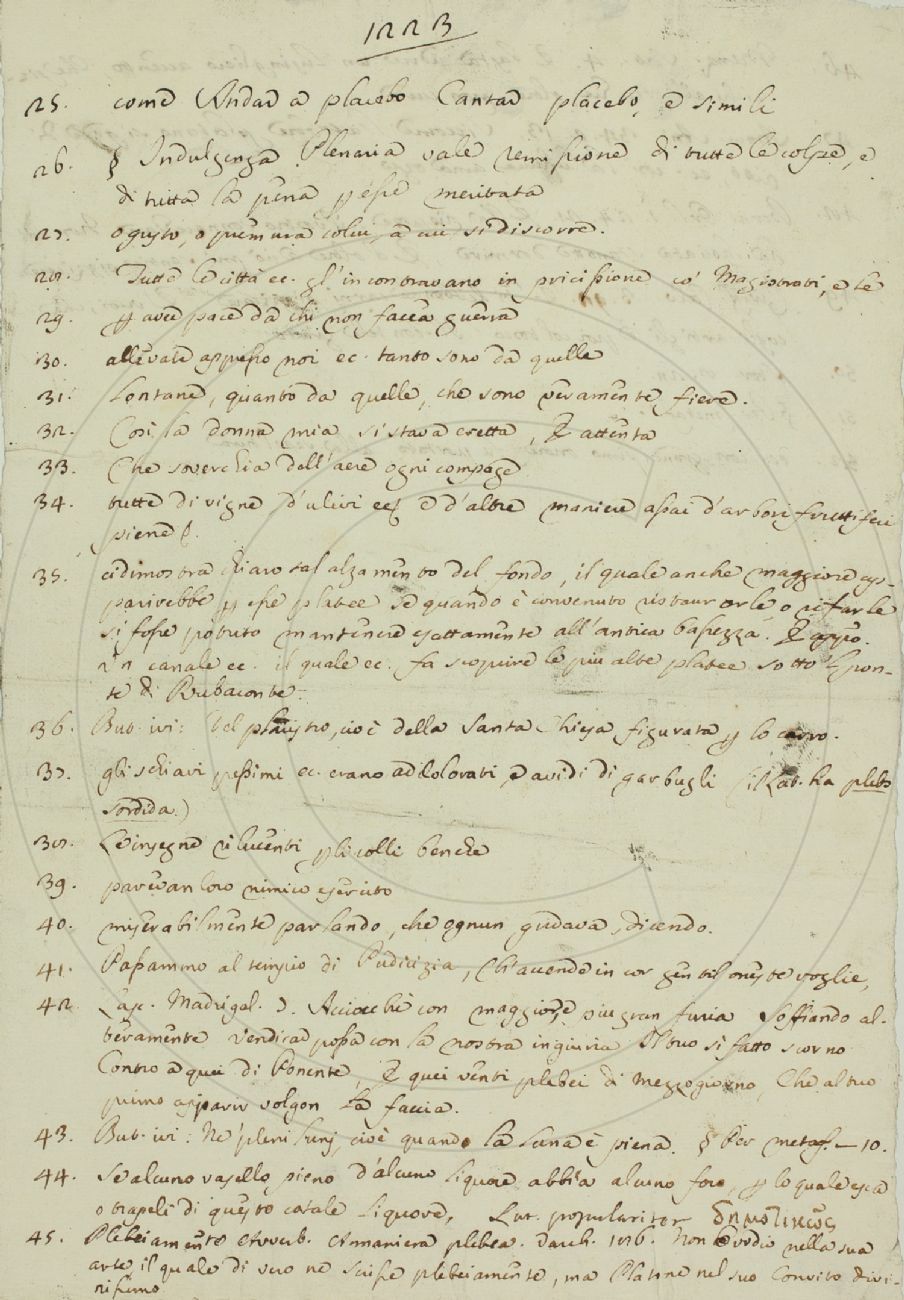 1223
25. come Andar a placebo Cantar placebo, e simili
26. § Indulgenza Plenaria vale remissione di tutte le colpe, e
di tutta la pena p esse meritata
27. o gusto, o premura colui, a cui si discorre.
28. Tutte le città ec. gl'incontravano in pricissione co' Magistrati, e le
29. p aver pace da chi non faccia guerra
30. allevate appresso noi ec. tanto sono da quelle
31. Lontane, quanto da quelle, che sono veramente fiere.
32. Così la donna mia si stava eretta, & attenta
33. Che soverchia dell'aere ogni compage
34. tutte di vigne d'ulivi ec e d'altre maniere assai d'arbori fruttiferi
piene
35. ci dimostra chiaro tal alzamento del fondo, il quale anche maggiore ap-
parirebbe p esse platee se quando è convenuto restaurarle, o rifarle
si fosse potuto mantenere esattamente all'antica bassezza. & appo.
Un canale ec. il quale ec. fa scoprire le più alte platee sotto 'l pon-
te di Rubaconte.
36. But. ivi: Del plaustro, cioè della Santa Chiesa figurata p lo carro.
37. gli schiavi pessimi ec. erano addolorati, e avidi di garbugli (il Lat. ha plebs
sordida.)
38. Le insegne rilucenti p li colli benche
39. parevan loro nimico esercito
40. miserabilmente parlando, che ognun gridava, dicendo.
41. Passammo al tempio di Pudicizia, Ch'accende in cor gentil oneste voglie,
42. Lasc. Madrigal. 7. Acciocchè con maggiore, e più gran furia Soffiando al-
teramente Vendicar possa con la nostra ingiuria Il tuo sì fatto scorno
Contro a quei di Ponente, & quei venti plebei di Mezzogiorno, Che al tuo
primo apparir volgon la faccia.
43. But. ivi: Ne' pleni lunj, cioè quando la Luna è piena. § Per metaf. — 10.
44. Se alcuno vasello pieno d'alcuno liquore abbia alcuno foro, p lo quale esca
o trapeli di questo cotale liquore, Lat. populariter δημοτικῶς
45. Plebeiamente Avverb. A maniera plebea. Varch. 1016. Non Ovidio nella sua
arte il quale di vero ne scrisse plebeiamente, ma Platone nel suo Convito divi-
nissimo